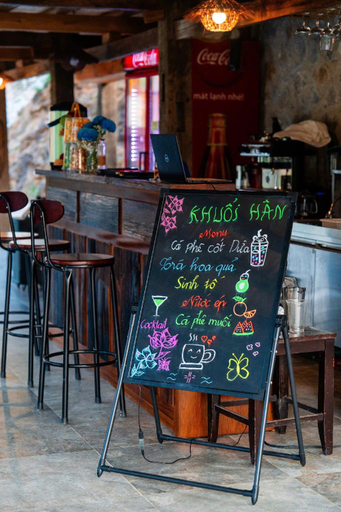 Coca-Cola
Coca-Cola
mát lạnh nhé!
KHUỔI HÂN
Menu
Cà phê cốt Dừa
Trà hoa quả
Sinh tố
Nước ép
Cocktail
Cà phê muối